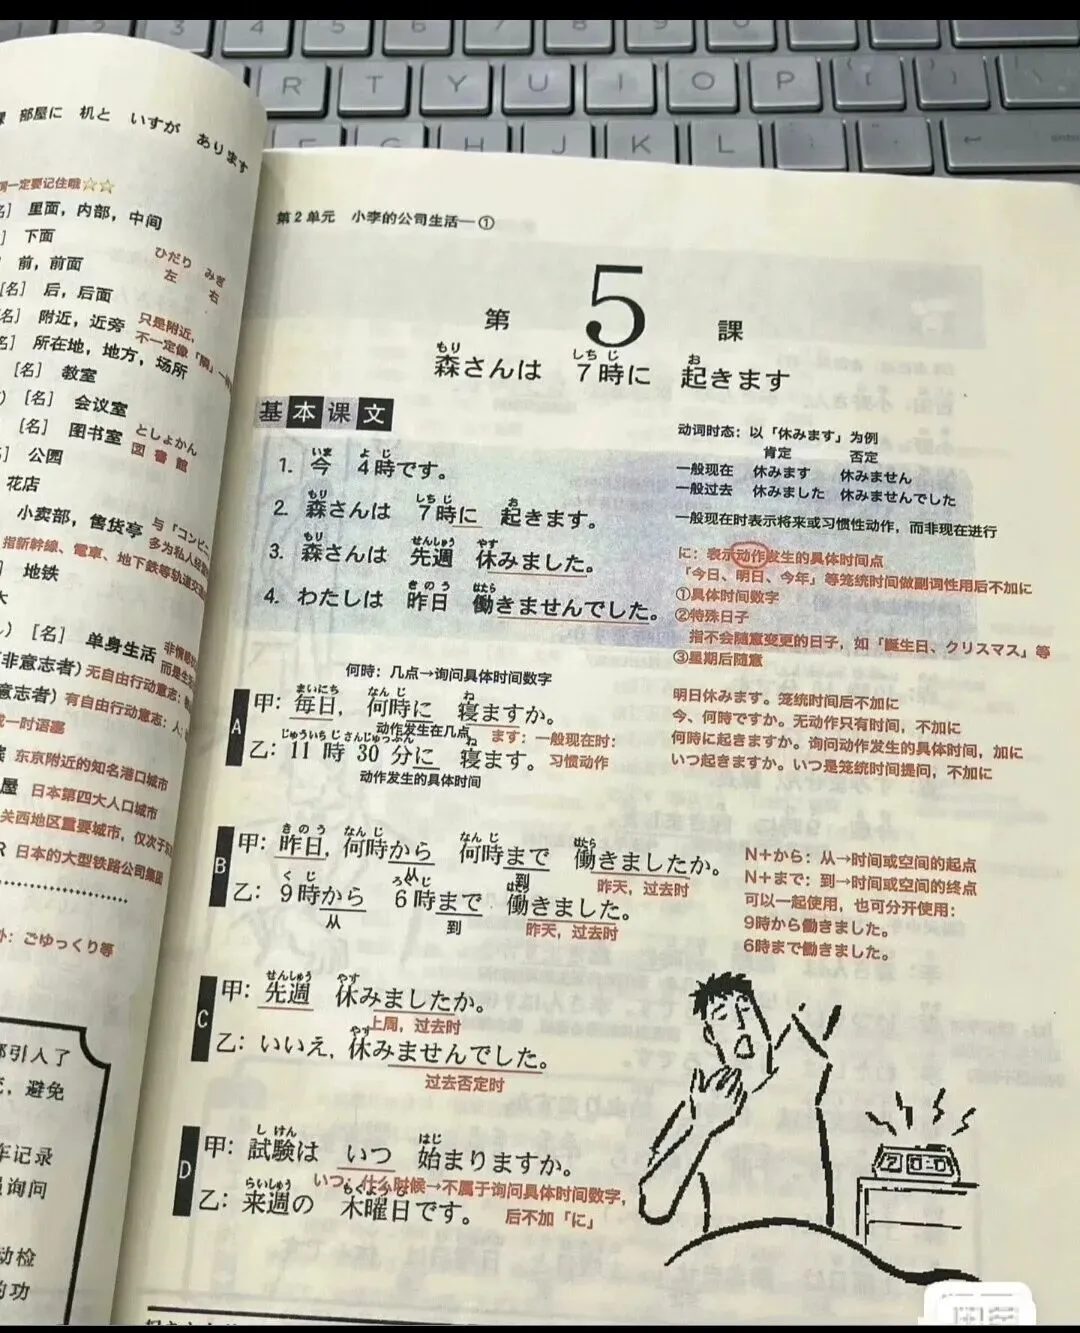 部屋に 机と いすが あります
一定要记住哦☆☆
里面，内部，中间
下面
前，前面
ひだり みぎ
左 右
[名] 后，后面
附近，近旁
只是附近，
不一定像「隣」一
所在地，地方，场所
[名] 教室
[名] 会议室
[名] 图书室
としょかん
図書館
公园
花店
小卖部，售货亭
与「コンビニ
多为私人经
指新幹線、電車、地下鉄等轨道交
地铁
[名] 单身生活
非情
而是
(非意志者) 无自由行动意志：
意志者) 有自由行动意志：人
一时语塞
东京附近的知名港口城市
屋 日本第四大人口城市
关西地区重要城市，仅次于
R 日本的大型铁路公司集团
：ごゆっくり等
部引入了
，避免
车记录
询问
动检
的功
第2单元 小李的公司生活—①
第 5 課
もり しち じ お
森さんは 7時に 起きます
基本课文
いま よ じ
1. 今 4時です。
もり しち じ お
2. 森さんは 7時に 起きます。
もり せんしゅう やす
3. 森さんは 先週 休みました。
きのう はたら
4. わたしは 昨日 働きませんでした。
动词时态：以「休みます」为例
肯定 否定
一般现在 休みます 休みません
一般过去 休みました 休みませんでした
一般现在时表示将来或习惯性动作，而非现在进行
に：表示动作发生的具体时间点
「今日、明日、今年」等笼统时间做副词性用后不加に
①具体时间数字
②特殊日子
指不会随意变更的日子，如「誕生日、クリスマス」等
③星期后随意
何時：几点→询问具体时间数字
A
まいにち なん じ ね
甲：毎日，何時に 寝ますか。
动作发生在几点
じゅういち じ さんじゅっぷん ね
乙：11 時 30 分に 寝ます。
ます：一般现在时：
习惯动作
动作发生的具体时间
明日休みます。笼统时间后不加に
今、何時ですか。无动作只有时间，不加に
何時に起きますか。询问动作发生的具体时间，加に
いつ起きますか。いつ是笼统时间提问，不加に
B
きのう なん じ なん じ はたら
甲：昨日，何時から 何時まで 働きましたか。
从 到 昨天，过去时
く じ ろく じ はたら
乙：9時から 6時まで 働きました。
从 到 昨天，过去时
N＋から：从→时间或空间的起点
N＋まで：到→时间或空间的终点
可以一起使用，也可分开使用：
9時から働きました。
6時まで働きました。
C
せんしゅう やす
甲：先週 休みましたか。
上周，过去时
やす
乙：いいえ，休みませんでした。
过去否定时
D
し けん はじ
甲：試験は いつ 始まりますか。
いつ：什么时候→不属于询问具体时间数字，
后不加「に」
らいしゅう もくようび
乙：来週の 木曜日です。